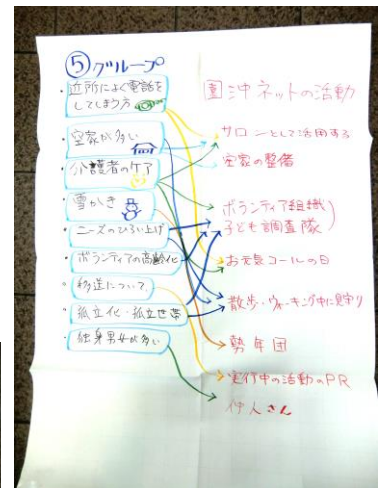 ⑤グループ
・近所によく電話を
してしまう方
・空家が多い
・介護者のケア
・雪かき
・ニーズのひろい上げ
・ボランティアの高齢化
・移送について
・孤立化・孤立世帯
・独身男女が多い
沖ネットの活動
サロンとして活用する
空家の整備
ボランティア組織
子ども調査隊
お元気コールの日
散歩・ウォーキング中に見守り
勢年団
実行中の活動のPR
仲人さん